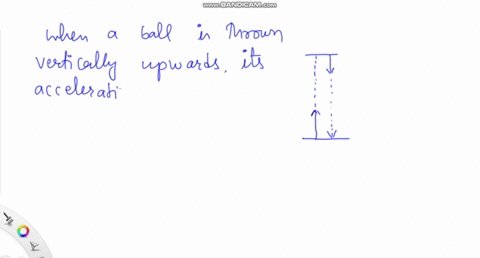 www.BANDICAM.com
when a ball is thrown
vertically upwards, its
accelerati